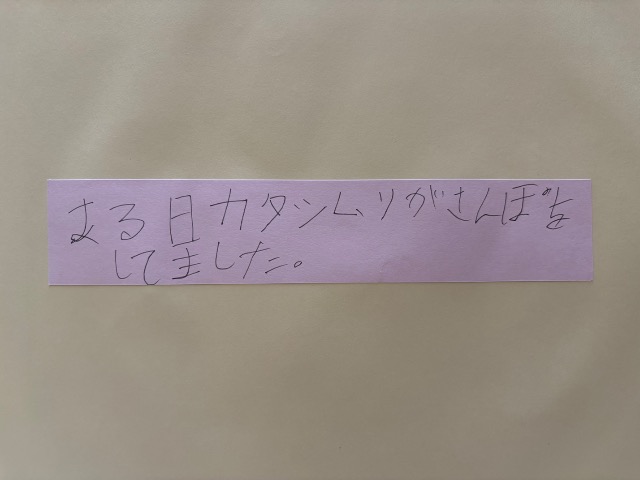 ある日カタツムリがさんぽを
してました。